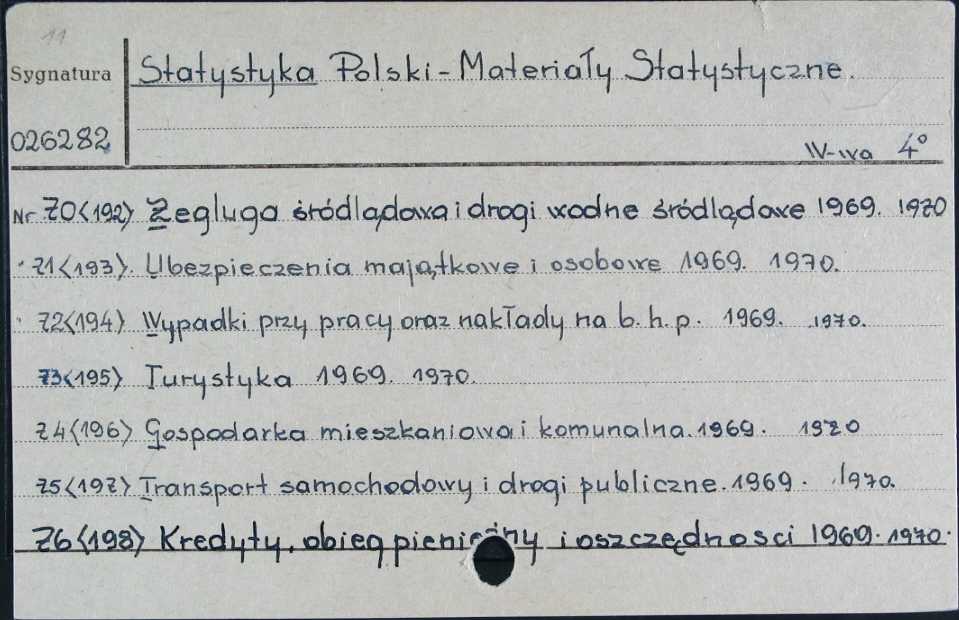 11
Sygnatura Statystyka Polski - Materiały Statystyczne.
026282
W-wa 4°
Nr 70<192> Żegluga śródlądowa i drogi wodne śródlądowe 1969. 1970
71<193>. Ubezpieczenia majątkowe i osobowe 1969. 1970.
72<194> Wypadki przy pracy oraz nakłady na b.h.p. 1969. 1970.
73<195> Turystyka 1969. 1970.
74<196> Gospodarka mieszkaniowa i komunalna. 1969. 1970
75<197> Transport samochodowy i drogi publiczne. 1969. 1970.
76<198> Kredyty, obieg pieniężny i oszczędnosci 1969. 1970.